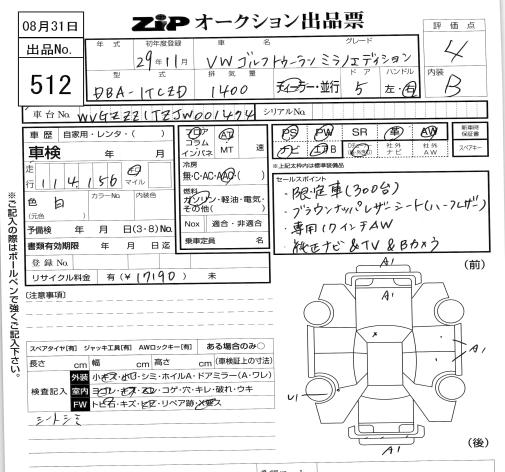 08月31日
ZIP オークション出品票
評価点
4
内装
B
出品No.
512
年式 初年度登録 車名 グレード
29年11月 VW ゴルフトゥーラン ミラノエディション
型式 排気量 ディーラー・並行 ドア ハンドル
DBA-1TCZD 1400 5 左・右
車台No. WVGZZZ1TZJW001474 シリアルNo.
車歴 自家用・レンタ・( )
車検 年 月
走行 114,156 km マイル
色 白 カラーNo. 内装色
(元色)
予備検 年 月 日 (3・8) No.
書類有効期限 年 月 日迄
登録No.
リサイクル料金 有(¥17190) 未
フロア コラム インパネ AT MT 速
冷房
無・C・AC・AAC・( )
燃料
ガソリン・軽油・電気・その他( )
Nox 適合・非適合
乗車定員 名
PS PW SR 革 AW
ナビ エアB 社外ナビ 社外AW
新車時保証書
スペアキー
※上記太枠内は標準装備品
セールスポイント
・限定車(300台)
・ブラウンナッパレザーシート(ハーフレザー)
・専用17インチAW
・純正ナビ&TV&Bカメラ
※ご記入の際はボールペンで強くご記入下さい。
(注意事項)
スペアタイヤ[有] ジャッキ工具[有] AWロックキー[有] ある場合のみ○
長さ cm 幅 cm 高さ cm (車検証上の寸法)
検査記入
外装 小キズ・凹・シミ・ホイルA・ドアミラー(A・ワレ)
室内 ヨゴレ・キズ・スレ・コゲ・穴・キレ・破れ・ウキ
FW トビ石・キズ・ヒビ・リペア跡・メ要ス
シートシミ
(前)
A1
A1
A1
U1
A1
(後)